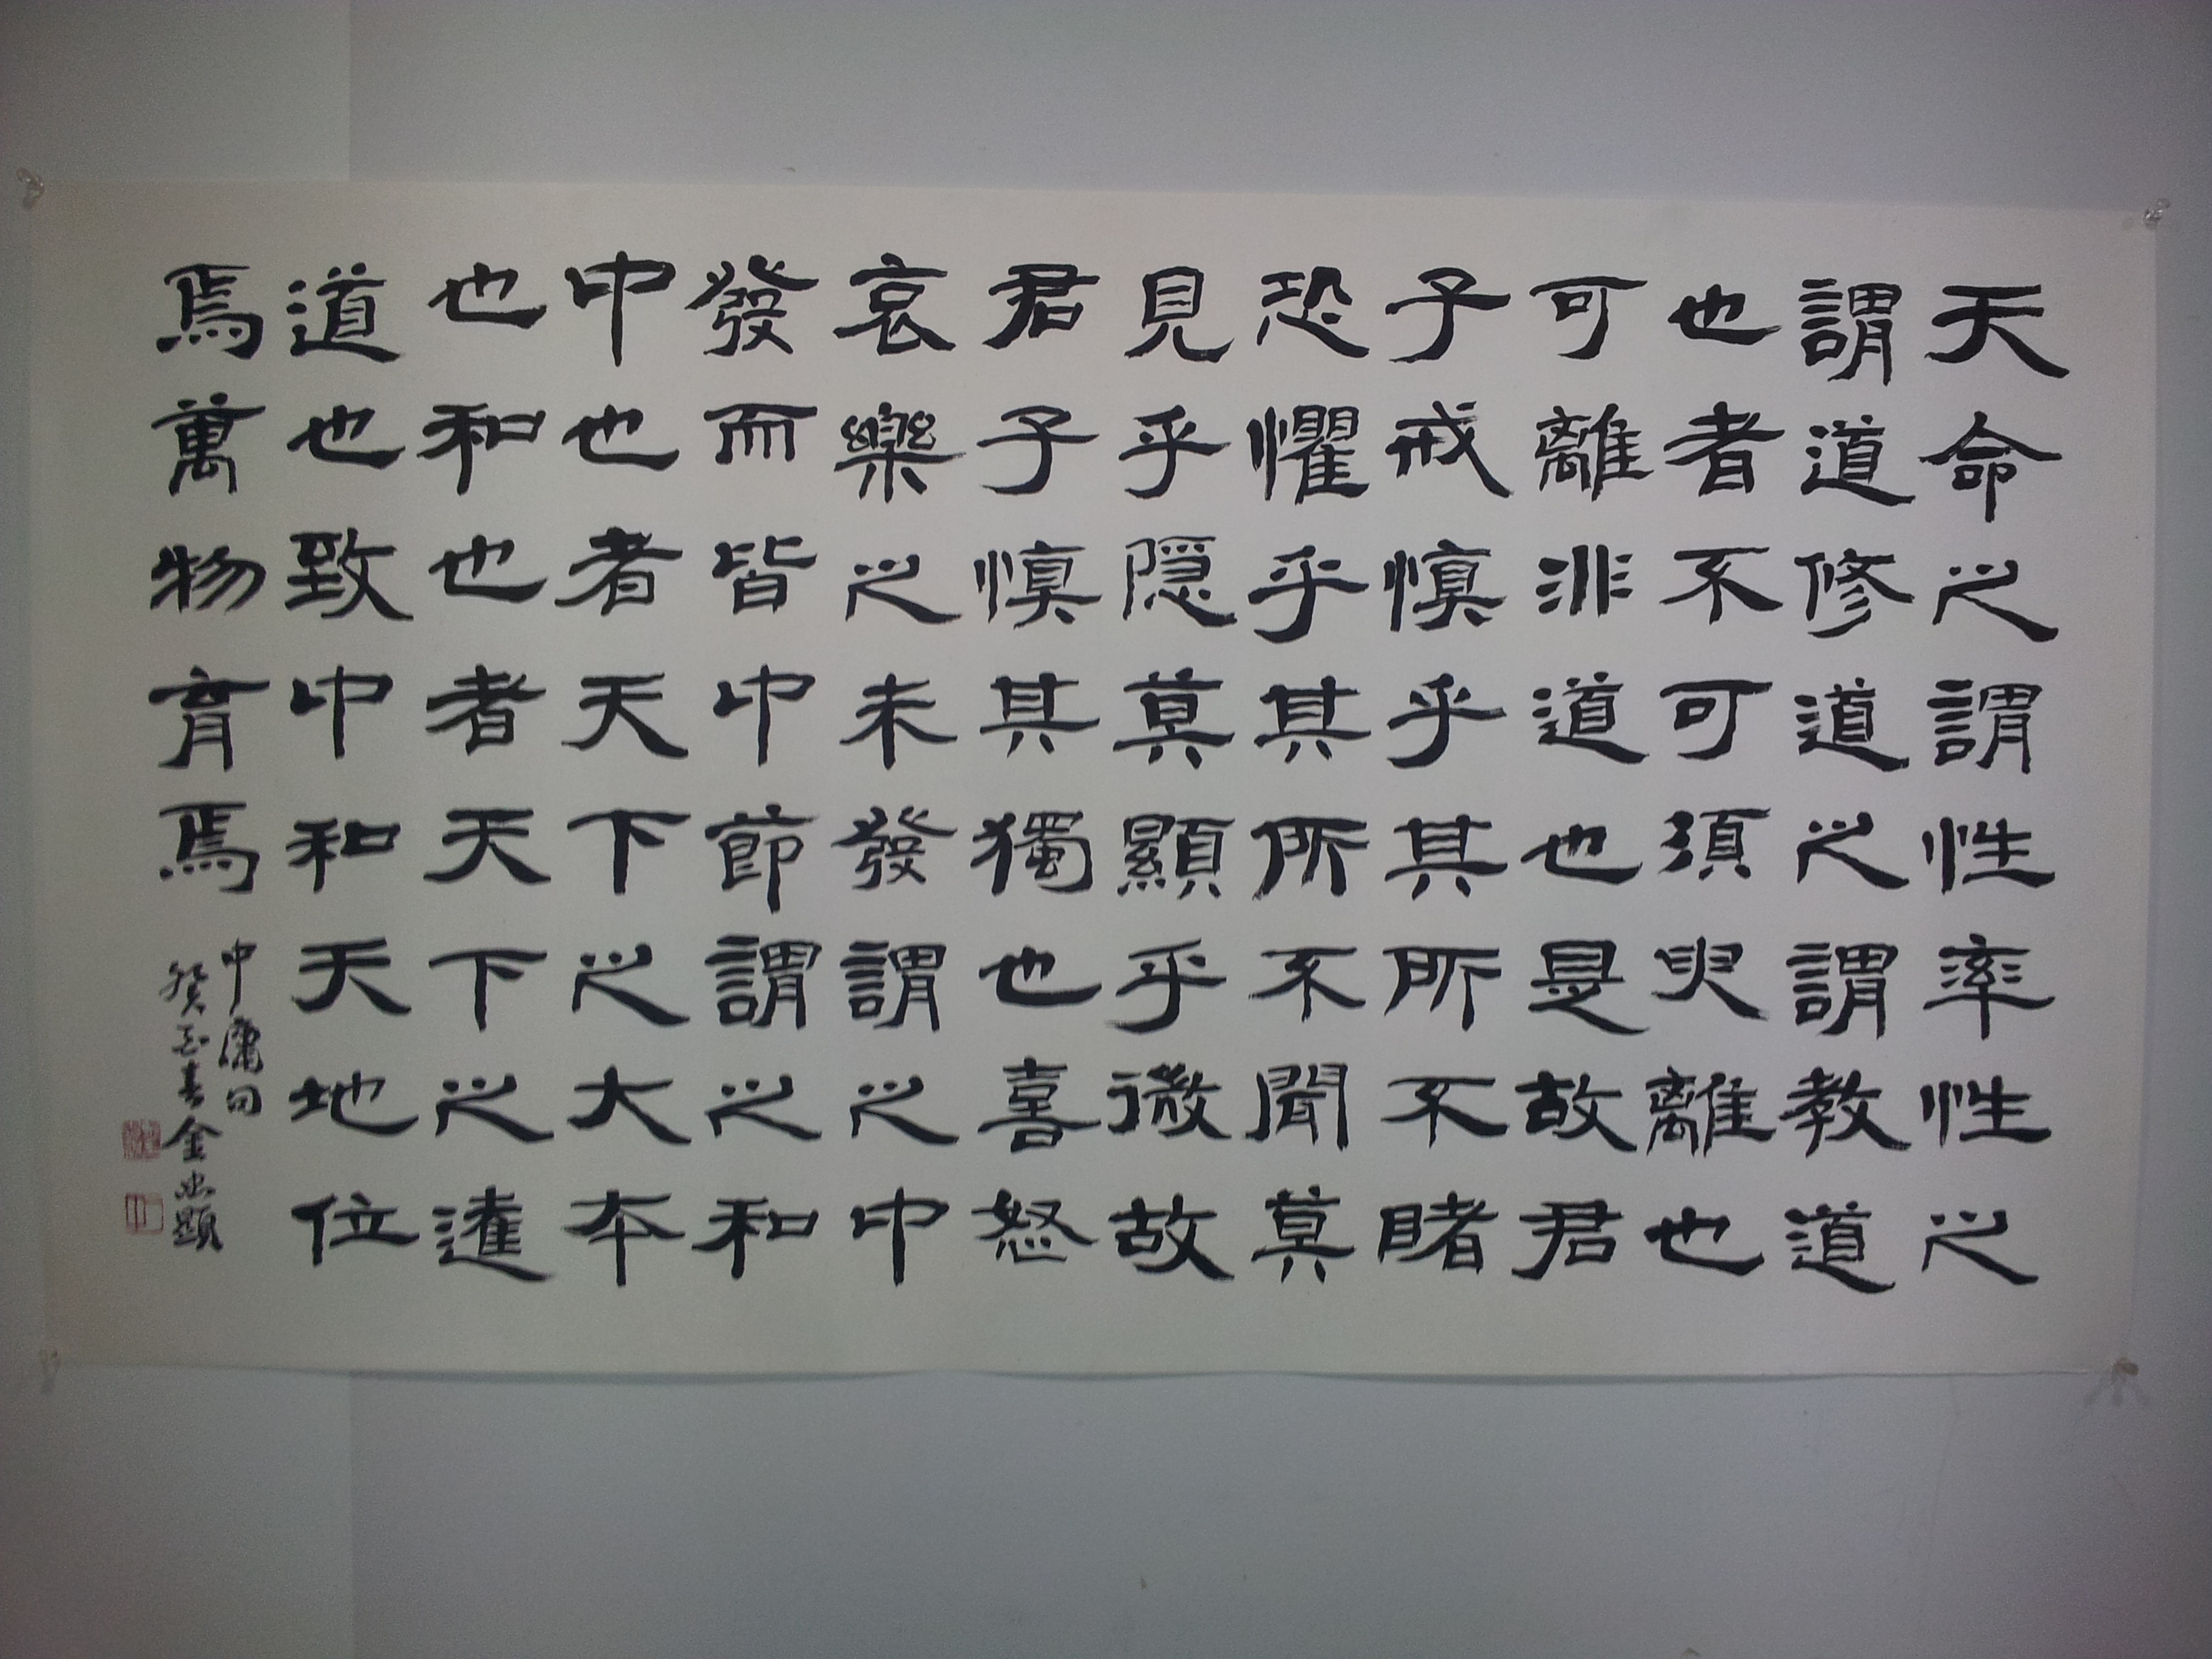 天命之謂性率性之
謂道修道之謂教道
也者不可須臾離也
可離非道也是故君
子戒慎乎其所不睹
恐懼乎其所不聞莫
見乎隠莫顯乎微故
君子慎其獨也喜怒
哀樂之未發謂之中
發而皆中節謂之和
中也者天下之大本
也和也者天下之達
道也致中和天地位
焉萬物育焉
中庸句
癸巳春金忠顯